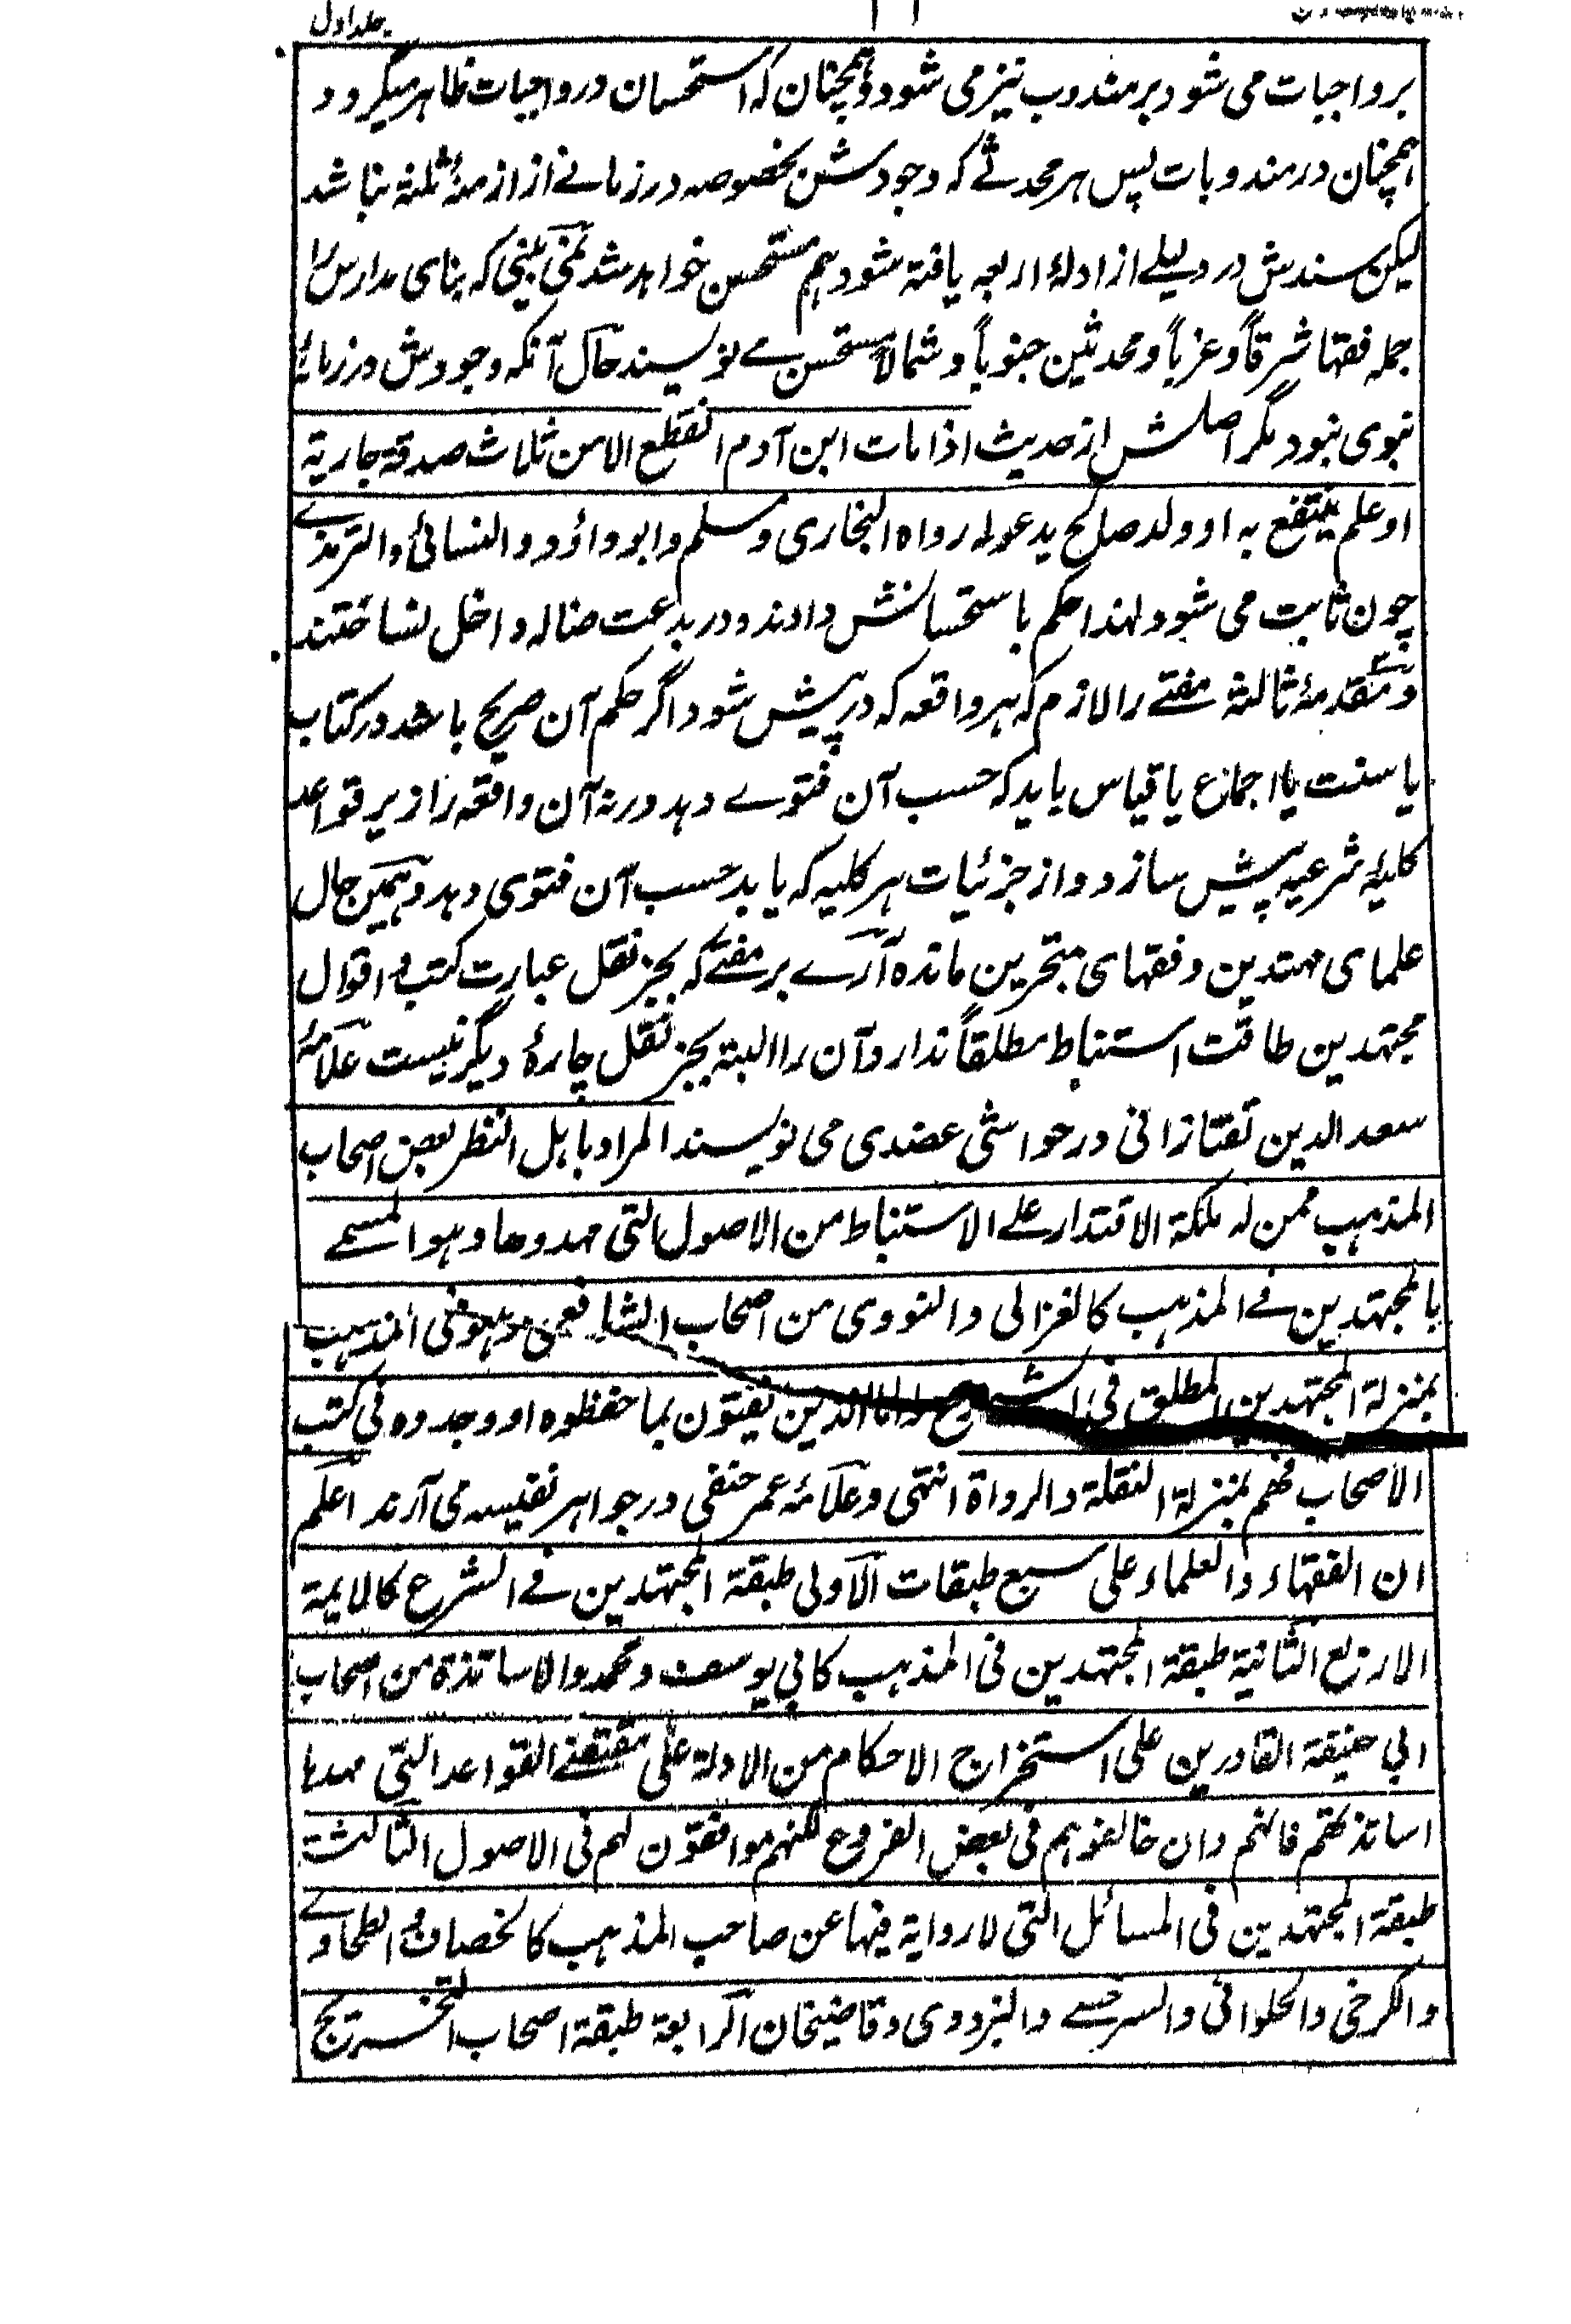 جلد اول
بر واجبات می شود بر مندوب نیز می شود و همچنان که استحسان در واجبات ظاهر میگردد
همچنان در مندوبات پس هر محدثے که وجودش بخصوصه در زمانے از ازمنهٔ ثلثه نباشد
لیکن سندش در دلیلے از ادلهٔ اربعه یافته شود هم مستحسن خواهد شد نمی بینی که بنای مدارس را
جمله فقها شرقاً و غرباً و محدثین جنوباً و شمالاً مستحسن مے نویسند حال آنکه وجودش در زمانۀ
نبوی نبود مگر اصلش از حدیث اذا مات ابن آدم انقطع الا من ثلاث صدقة جاریة
او علم ینتفع به او ولد صالح یدعو له رواه البخاری و مسلم و ابو داؤد و النسائی و الترمذے
چون ثابت می شود لهذا حکم باستحسانش دادند و در بدعت ضاله داخل نساختند
و مقدمۀ ثالثه مفتے را لازم که هر واقعه که درپیش شود اگر حکم آن صریح باشد در کتاب
یا سنت یا اجماع یا قیاس باید که حسب آن فتوے دهد ورنه آن واقعه را زیر قواعد
کلیۀ شرعیه پیش سازد و از جزئیات هر کلیه که یابد حسب آن فتوی دهد و همین حال
علمای مهتدین و فقهای متبحرین مانده آرے بر مفتے که بجز نقل عبارت کتب و اقوال
مجتهدین طاقت استنباط مطلقاً ندارد آن را البته بجز نقل چارۀ دیگر نیست علامۀ
سعد الدین تفتازانی در حواشی عضدی می نویسند المراد باهل النظر بعض اصحاب
المذهب ممن له ملکة الاقتدار علے الاستنباط من الاصول التی مهدوها و هو المسمے
بالمجتهدین فے المذهب کالغزالی و النووی من اصحاب الشافعی و هو فی المذهب
بمنزلة المجتهدین المطلق فی الشرع و اما الذین یفتون بما حفظوه او وجدوه فی کتب
الاصحاب فهم بمنزلة النقلة و الرواة انتهی و علامۀ عمر حنفی در جواهر نفیسه می آرند اعلم
ان الفقهاء و العلماء علی سبع طبقات الاولی طبقة المجتهدین فے الشرع کالایمة
الاربع الثانیة طبقة المجتهدین فی المذهب کابی یوسف و محمد و الاساتذة من اصحاب
ابی حنیفة القادرین علی استخراج الاحکام من الادلة علی مقتضے القواعد التی مهدها
اساتذتهم فانهم و ان خالفوهم فی بعض الفروع لکنهم موافقون لهم فی الاصول الثالثة
طبقة المجتهدین فی المسائل التی لا روایة فیها عن صاحب المذهب کالخصاف و الطحاوے
و الکرخی و الحلوائی و السرخسے و البزدوی و قاضیخان الرابعة طبقة اصحاب التخریج